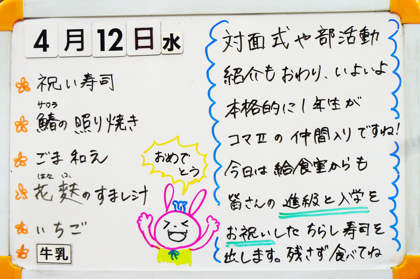 4月12日水
祝い寿司
サワラ
鰆の照り焼き
ごま和え
はな ふ
花麩のすまし汁
いちご
牛乳
おめで
とう
対面式や部活動
紹介もおわり、いよいよ
本格的に1年生が
コマⅡの仲間入りですね!
今日は給食室からも
皆さんの進級と入学を
お祝いしたちらし寿司を
出します。残さず食べてね